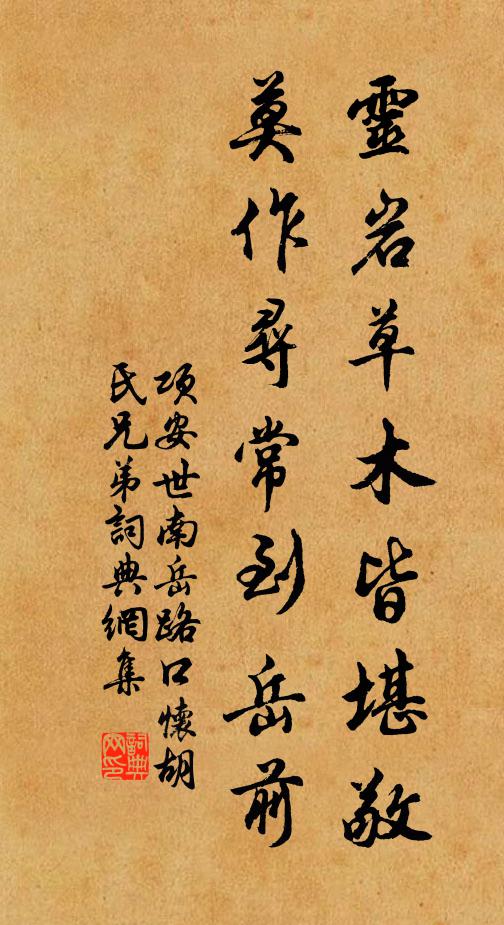 靈岩草木皆堪敬
莫作尋常到岳前
項安世南岳路口懷胡
氏兄弟詞典網集
詞典網印